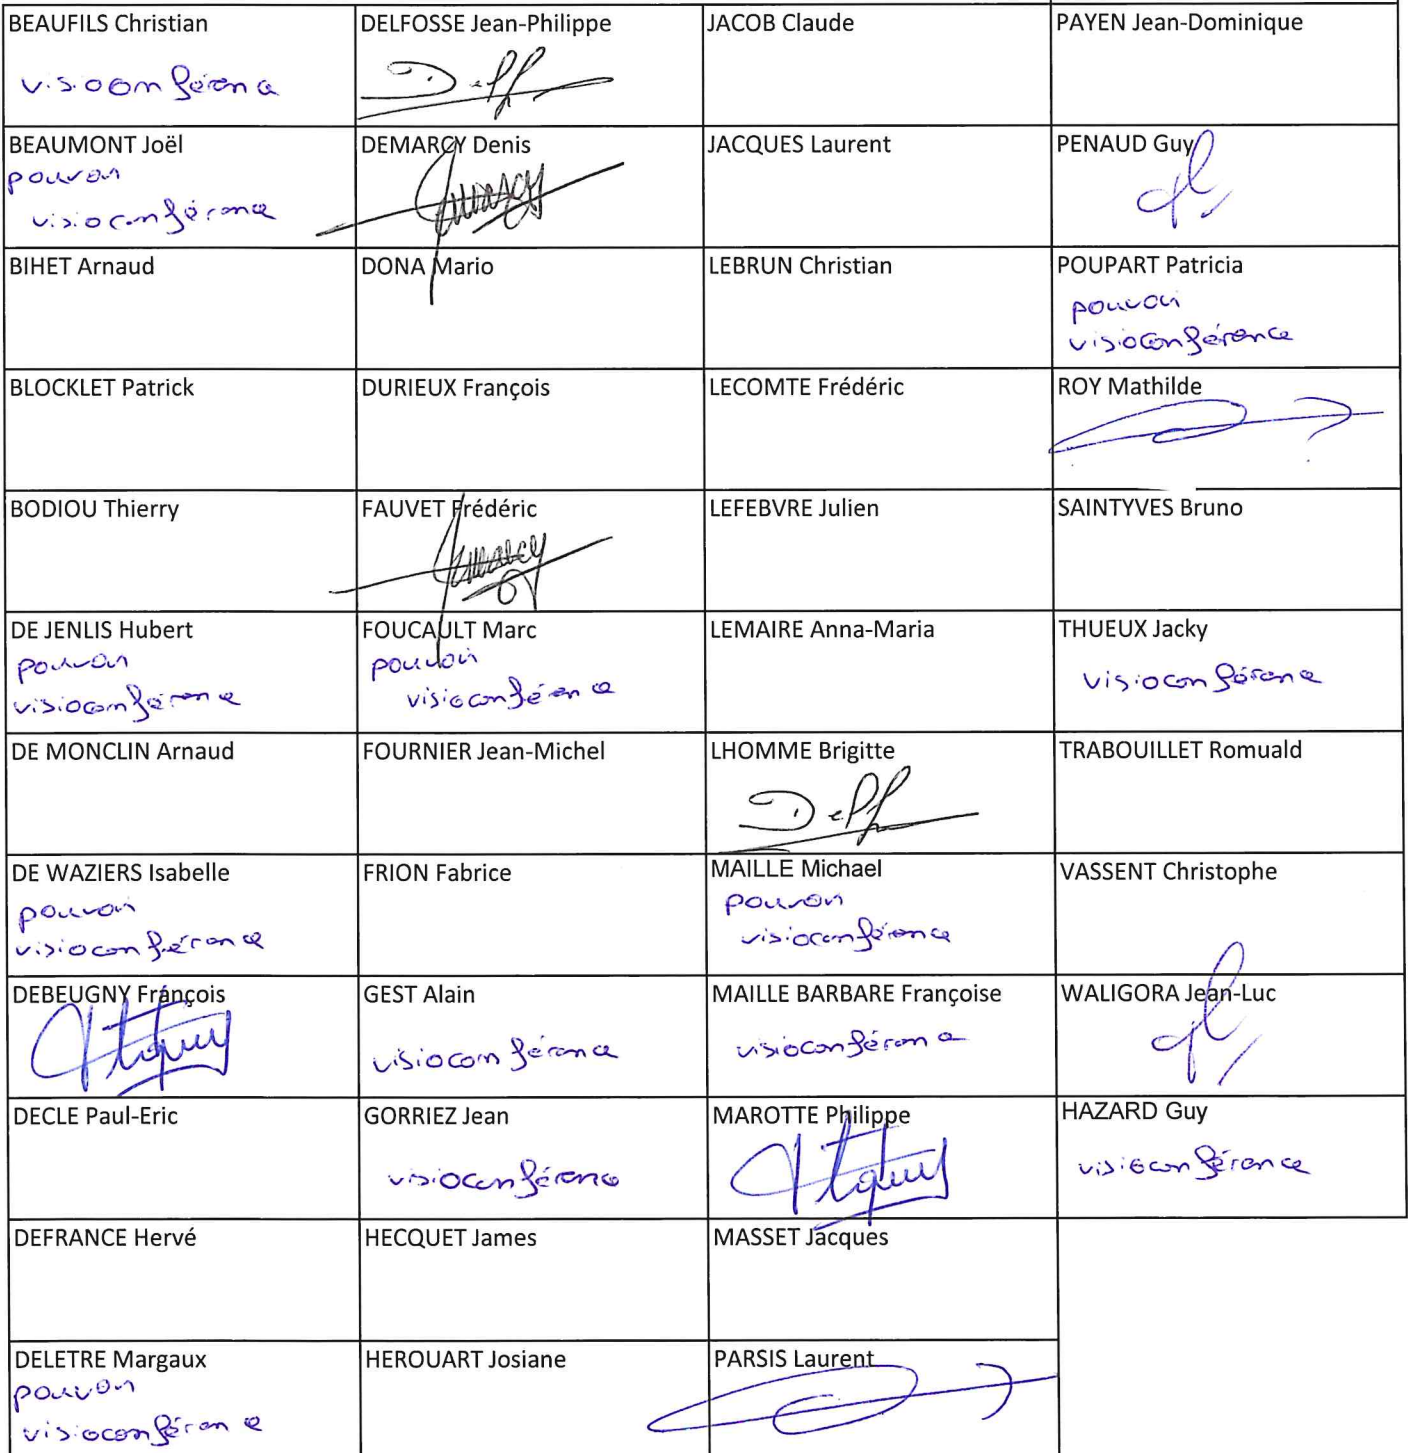 BEAUFILS Christian
visioconférence
DELFOSSE Jean-Philippe
JACOB Claude
PAYEN Jean-Dominique
BEAUMONT Joël
pouvoir
visioconférence
DEMARCY Denis
JACQUES Laurent
PENAUD Guy
BIHET Arnaud
DONA Mario
LEBRUN Christian
POUPART Patricia
pouvoir
visioconférence
BLOCKLET Patrick
DURIEUX François
LECOMTE Frédéric
ROY Mathilde
BODIOU Thierry
FAUVET Frédéric
LEFEBVRE Julien
SAINTYVES Bruno
DE JENLIS Hubert
pouvoir
visioconférence
FOUCAULT Marc
pouvoir
visioconférence
LEMAIRE Anna-Maria
THUEUX Jacky
visioconférence
DE MONCLIN Arnaud
FOURNIER Jean-Michel
LHOMME Brigitte
TRABOUILLET Romuald
DE WAZIERS Isabelle
pouvoir
visioconférence
FRION Fabrice
MAILLE Michael
pouvoir
visioconférence
VASSENT Christophe
DEBEUGNY François
GEST Alain
visioconférence
MAILLE BARBARE Françoise
visioconférence
WALIGORA Jean-Luc
DECLE Paul-Eric
GORRIEZ Jean
visioconférence
MAROTTE Philippe
HAZARD Guy
visioconférence
DEFRANCE Hervé
HECQUET James
MASSET Jacques
DELETRE Margaux
pouvoir
visioconférence
HEROUART Josiane
PARSIS Laurent